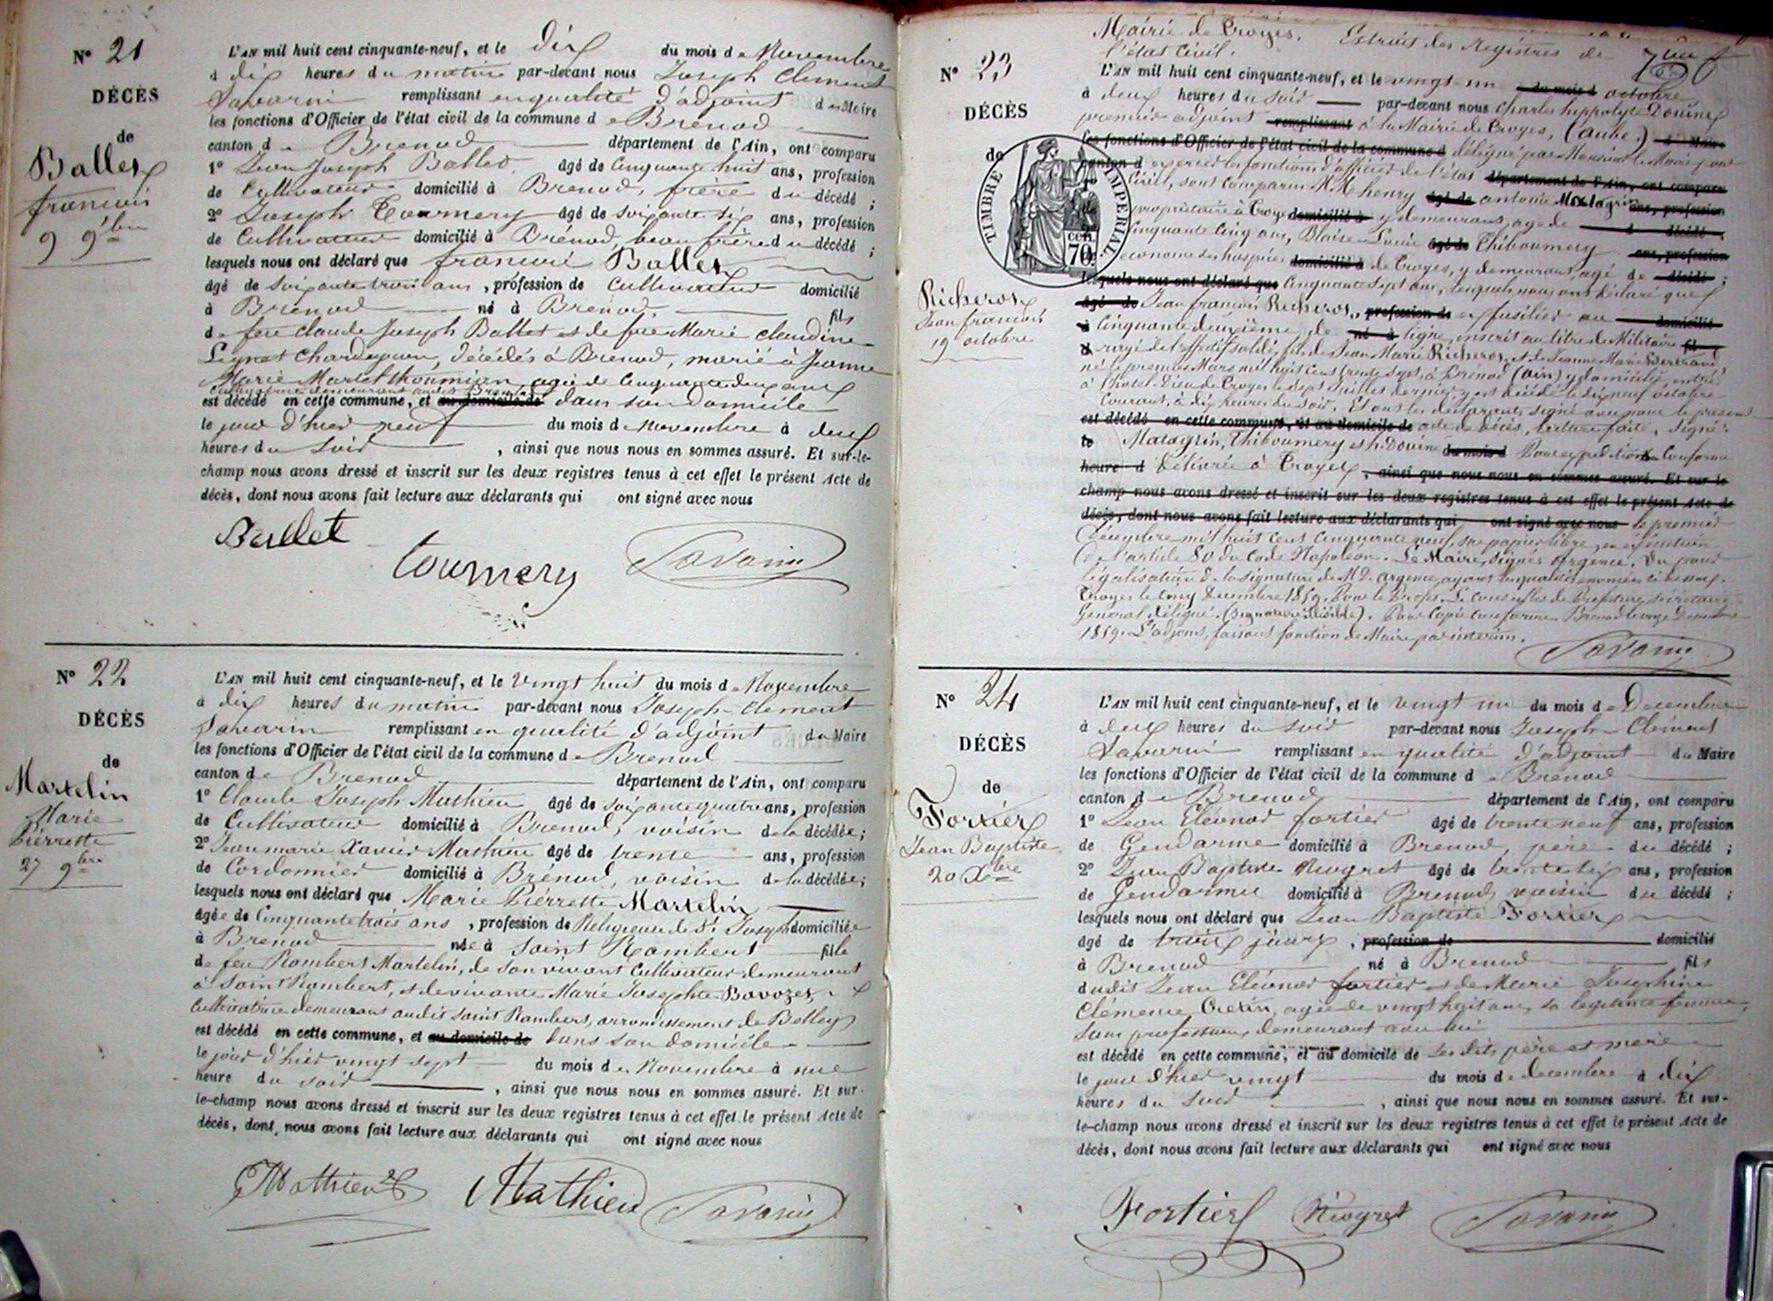 N° 21
DÉCÈS
de
Ballet
françois
9 9bre
L'AN mil huit cent cinquante-neuf, et le dix du mois de Novembre
à dix heures du matin par-devant nous Joseph Clement
Savarin remplissant en qualité d'adjoint du Maire
les fonctions d'Officier de l'état civil de la commune de Brenod
canton de Brenod département de l'Ain, ont comparu
1° Jean Joseph Ballet âgé de Cinquante huit ans, profession
de Cultivateur domicilié à Brenod, frère du décédé ;
2° Joseph Tournery âgé de soixante six ans, profession
de Cultivateur domicilié à Brénod, beau frère du décédé ;
lesquels nous ont déclaré que françois Ballet
âgé de soixante trois ans, profession de Cultivateur domicilié
à Brenod né à Brenod, fils
de feu Claude Joseph Ballet et de feue Marie Claudine
Chardeyron, décédés à Brenod, marié à Jeanne
Marie Martel Thoumien, agée de Cinquante deux ans
est décédé en cette commune, et au domicile de dans son domicile
le jour d'hier neuf du mois de Novembre à deux
heures du soir, ainsi que nous nous en sommes assuré. Et sur-le-
champ nous avons dressé et inscrit sur les deux registres tenus à cet effet le présent Acte de
décès, dont nous avons fait lecture aux déclarants qui ont signé avec nous
Ballet
Tournery
Savarin
N° 22
DÉCÈS
de
Martelin
Marie
Pierrette
27 9bre
L'AN mil huit cent cinquante-neuf, et le vingt huit du mois de Novembre
à dix heures du matin par-devant nous Joseph Clement
Savarin remplissant en qualité d'adjoint du Maire
les fonctions d'Officier de l'état civil de la commune de Brenod
canton de Brenod département de l'Ain, ont comparu
1° Claude Joseph Mathieu âgé de soixante quatre ans, profession
de Cultivateur domicilié à Brenod, voisin de la décédée ;
2° Jean marie Xavier Mathieu âgé de trente ans, profession
de Cordonnier domicilié à Brénod, voisin de la décédée ;
lesquels nous ont déclaré que Marie Pierrette Martelin
âgée de Cinquante trois ans, profession de Religieuse de St Joseph domiciliée
à Brenod née à Saint Rambert fille
de feu Rambert Martelin, de son vivant Cultivateur demeurant
à Saint Rambert, et de vivante Marie Josephte Bovozet,
cultivatrice demeurant audit Saint Rambert, arrondissement de Belley
est décédé en cette commune, et au domicile de dans son domicile
le jour d'hier vingt sept du mois de Novembre à une
heure du soir, ainsi que nous nous en sommes assuré. Et sur-
le-champ nous avons dressé et inscrit sur les deux registres tenus à cet effet le présent Acte de
décès, dont nous avons fait lecture aux déclarants qui ont signé avec nous
Mathieu Mathieu Savarin
Mairie de Troyes. Extrait des registres de
l'état civil.
N° 23
DÉCÈS
de
TIMBRE IMPÉRIAL
CEN. 70
Richerot
Jean françois
19 octobre
L'AN mil huit cent cinquante-neuf, et le vingt un du mois d octobre
à deux heures du soir par-devant nous Charles hippolyte Douine
premier adjoint remplissant à la Mairie de Troyes, (aube.) d Maire
les fonctions d'Officier de l'état civil de la commune d délégué par Monsieur le Maire pour
canton d exercer les fonctions d'officier de l'état département de l'Ain, ont comparu
civil, sont comparus M.M. henry âgé de antoine Matagrin ans, profession
propriétaire à Troyes domicilié à y demeurant, agé de d décédé ;
Cinquante Cinq ans, Blaise Lucie âgé de Thiboumery ans, profession
econome des hospices domicilié à de Troyes, y demeurant, agé de décédé ;
lesquels nous ont déclaré que Cinquante sept ans, lesquels nous ont déclaré que
âgé de Jean françois Richerot, profession de ex fusilier au domicilié
à Cinquante deuxième de né à ligne, inscrit au titre de Militaire fil
d rayé de l'effectif soldé, fils de Jean Marie Richerot, et de Jeanne Marie Bertrand
né le premier Mars mil huit cent trente sept, à Brénod (ain) y domicilié, entré
à l'hotel-Dieu de Troyes le sept Juillet dernier, y est décédé le dix neuf octobre
Courant, à dix heures du soir. Et ont les déclarants signé avec nous le présent
est décédé en cette commune, et au domicile de acte de décès, lecture faite. Signé :
le Matagrin, Thiboumery et h. Douine du mois d Pour expédition Conforme
heure d Délivrée à Troyes, ainsi que nous nous en sommes assuré. Et sur le
champ nous avons dressé et inscrit sur les deux registres tenus à cet effet le présent Acte de
décès, dont nous avons fait lecture aux déclarants qui ont signé avec nous le premier
Décembre mil huit cent cinquante neuf, sur papier libre, en exécution
de l'article 80 du Code Napoléon. Le Maire, signé Argence. Vu pour
légalisation de la signature de Mr D. Argence ayant les qualités énoncées ci dessus.
Troyes le cinq Décembre 1859. Pour le Préfet. Le Conseiller de Préfecture, secrétaire
Général délégué. (Signature illisible). Pour Copie Conforme Brénod le onze Décembre
1859. L'adjoint, faisant fonction de Maire par interim.
Savarin
N° 24
DÉCÈS
de
Fortier
Jean Baptiste
20 Xbre
L'AN mil huit cent cinquante-neuf, et le vingt un du mois de Decembre
à deux heures du soir par-devant nous Joseph Clément
Savarin remplissant en qualité d'adjoint du Maire
les fonctions d'Officier de l'état civil de la commune de Brenod
canton de Brenod département de l'Ain, ont comparu
1° Jean Eléonor fortier âgé de trente neuf ans, profession
de Gendarme domicilié à Brenod, père du décédé ;
2° Jean Baptiste Nioyret âgé de trente six ans, profession
de Gendarme domicilié à Brenod, voisin du décédé ;
lesquels nous ont déclaré que Jean Baptiste Fortier
âgé de trois jours, profession de domicilié
à Brenod né à Brenod fils
dudit Jean Eléonor fortier et de Marie Joséphine
Clémence Cretin, agée de vingt huit ans, sa légitime femme,
sans profession, demeurant avec lui
est décédé en cette commune, et au domicile de ses dits père et mère
le jour d'hier vingt du mois de decembre à dix
heures du soir, ainsi que nous nous en sommes assuré. Et sur-
le-champ nous avons dressé et inscrit sur les deux registres tenus à cet effet le présent Acte de
décès, dont nous avons fait lecture aux déclarants qui ont signé avec nous
Fortier Nioyret Savarin